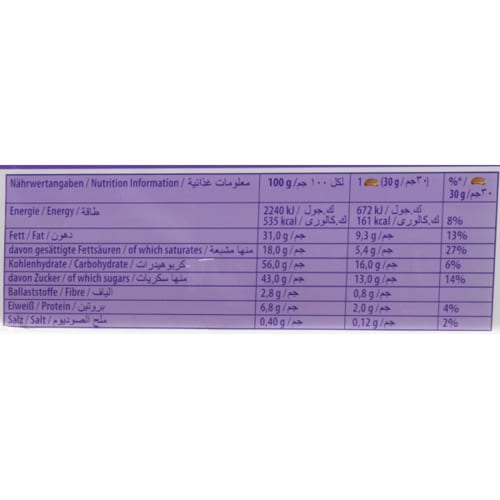 Nährwertangaben / Nutrition Information / معلومات غذائية 100 g / لكل ١٠٠ جم 1 (30 g / ٣٠جم) %* /
30 g / ٣٠جم
Energie / Energy / طاقة 2240 kJ / ك.جول 672 kJ / ك.جول
535 kcal / ك.كالورى 161 kcal / ك.كالورى 8%
Fett / Fat / دهون 31,0 g / جم 9,3 g / جم 13%
davon gesättigte Fettsäuren / of which saturates / منها مشبعة 18,0 g / جم 5,4 g / جم 27%
Kohlenhydrate / Carbohydrate / كربوهيدرات 56,0 g / جم 16,0 g / جم 6%
davon Zucker / of which sugars / منها سكريات 43,0 g / جم 13,0 g / جم 14%
Ballaststoffe / Fibre / الياف 2,8 g / جم 0,8 g / جم
Eiweiß / Protein / بروتين 6,8 g / جم 2,0 g / جم 4%
Salz / Salt / ملح الصوديوم 0,40 g / جم 0,12 g / جم 2%